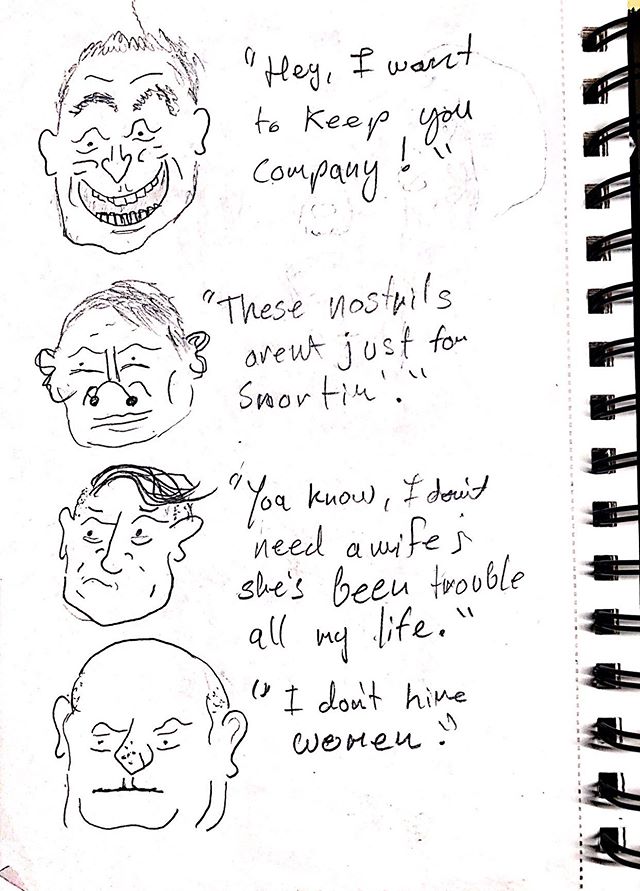 "Hey, I want
to keep you
company!"
"These nostrils
arent just for
snortin'."
"You know, I don't
need a wife;
she's been trouble
all my life."
"I don't hire
women."